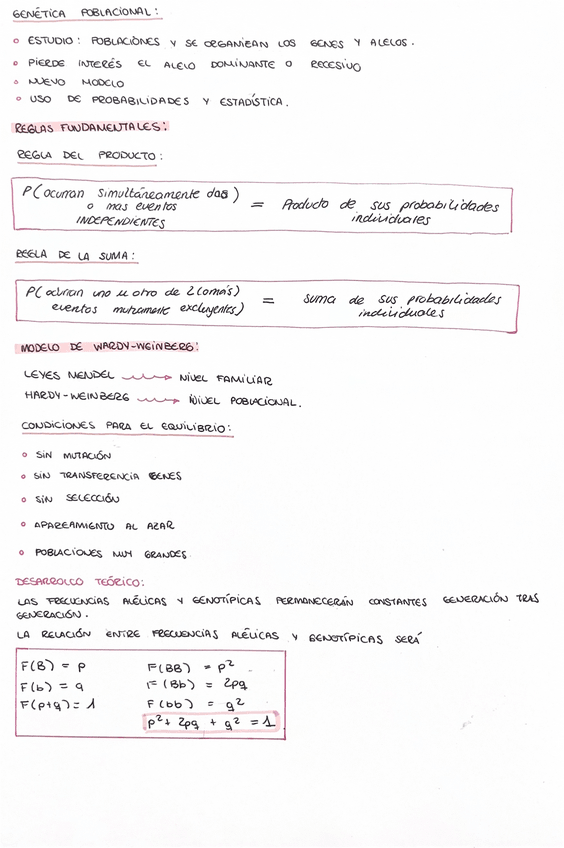 GENÉTICA POBLACIONAL:
ESTUDIO: POBLACIONES Y SE ORGANIZAN LOS GENES Y ALELOS.
PIERDE INTERÉS EL ALELO DOMINANTE O RECESIVO
NUEVO MODELO
USO DE PROBABILIDADES Y ESTADÍSTICA.
REGLAS FUNDAMENTALES:
REGLA DEL PRODUCTO:
P(ocurran simultáneamente dos) = Producto de sus probabilidades
o mas eventos individuales
INDEPENDIENTES
REGLA DE LA SUMA:
P(ocurran uno u otro de 2(omás) = suma de sus probabilidades
eventos mutuamente excluyentes) individuales
MODELO DE HARDY-WEINBERG:
LEYES MENDEL → NIVEL FAMILIAR
HARDY-WEINBERG → NIVEL POBLACIONAL.
CONDICIONES PARA EL EQUILIBRIO:
SIN MUTACIÓN
SIN TRANSFERENCIA GENES
SIN SELECCIÓN
APAREAMIENTO AL AZAR
POBLACIONES MUY GRANDES
DESARROLLO TEÓRICO:
LAS FRECUENCIAS ALÉLICAS Y GENOTÍPICAS PERMANECERÁN CONSTANTES GENERACIÓN TRAS
GENERACIÓN.
LA RELACIÓN ENTRE FRECUENCIAS ALÉLICAS Y GENOTÍPICAS SERÁ
F(B) = p F(BB) = p²
F(b) = q F(Bb) = 2pq
F(p+q) = 1 F(bb) = q²
p² + 2pq + q² = 1